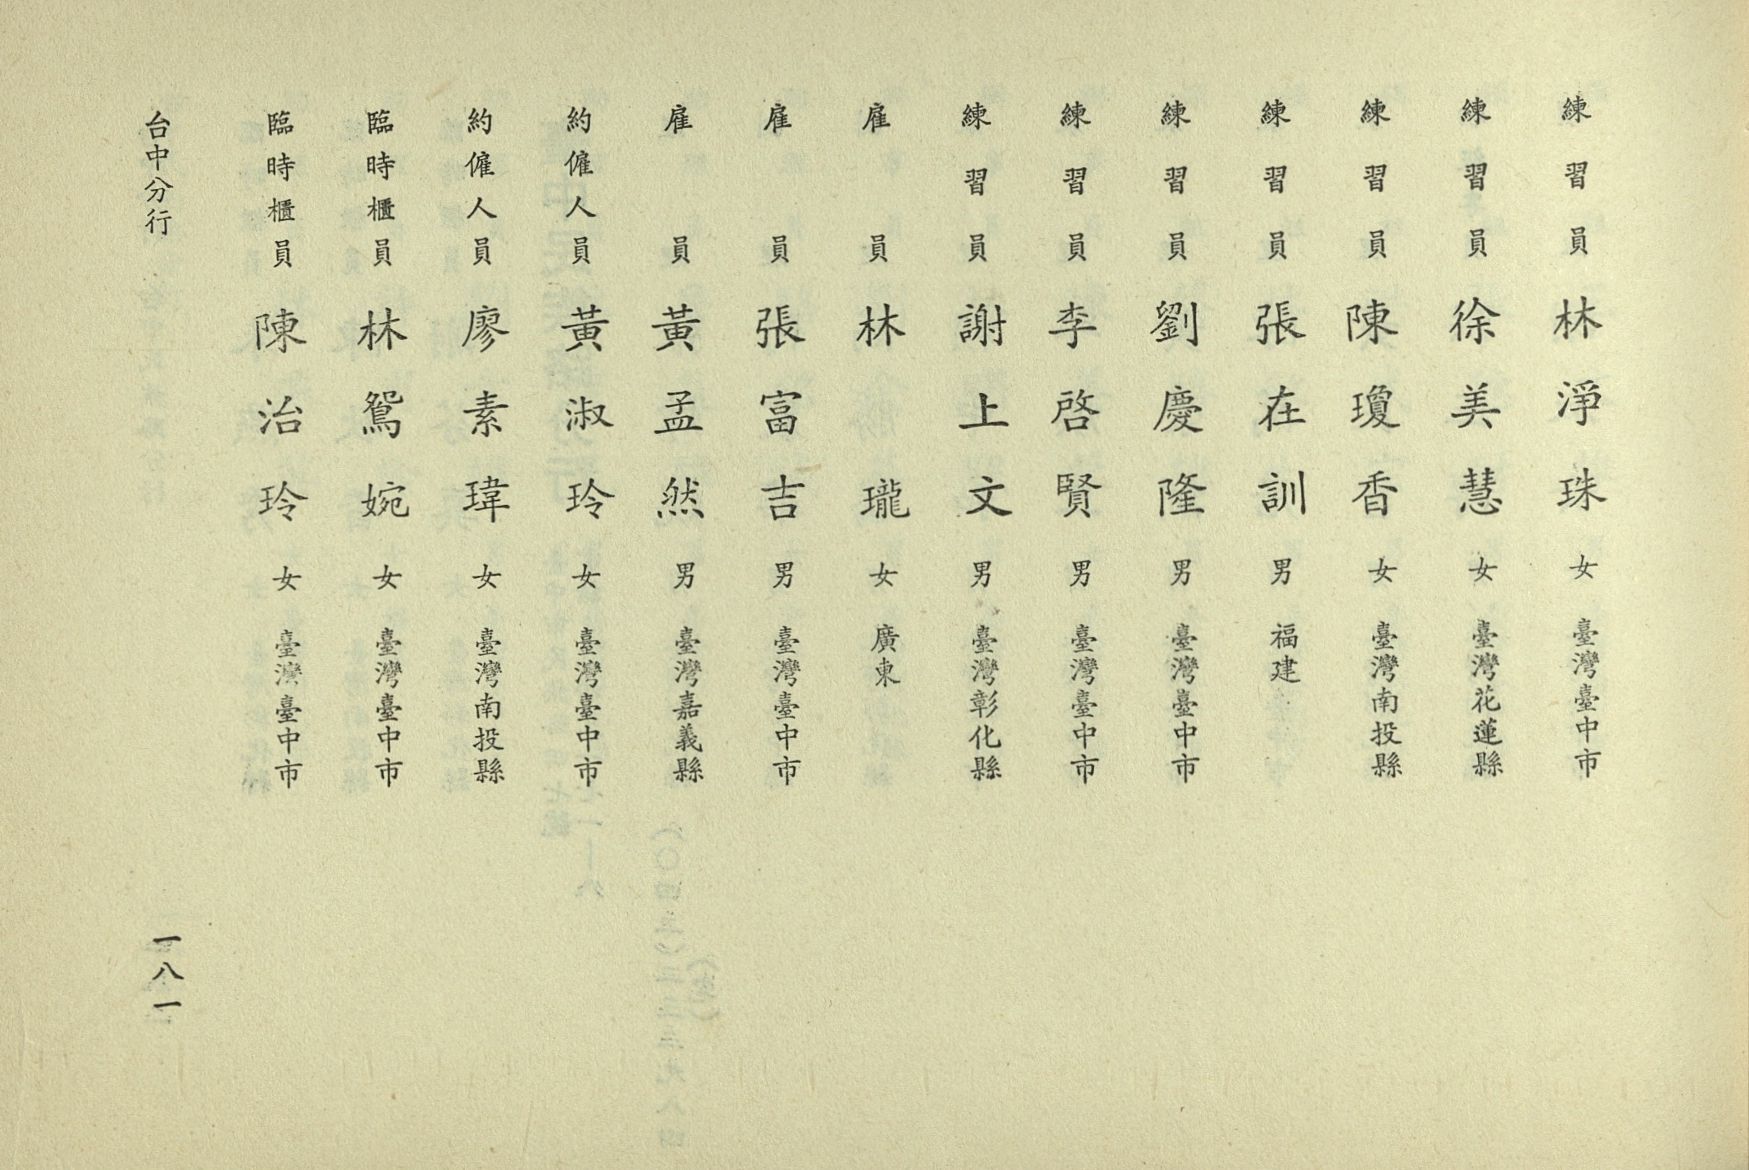 練習員 林淨珠 女 臺灣臺中市
練習員 徐美慧 女 臺灣花蓮縣
練習員 陳瓊香 女 臺灣南投縣
練習員 張在訓 男 福建
練習員 劉慶隆 男 臺灣臺中市
練習員 李啓賢 男 臺灣臺中市
練習員 謝上文 男 臺灣彰化縣
雇員 林瓏 女 廣東
雇員 張富吉 男 臺灣臺中市
雇員 黃孟然 男 臺灣嘉義縣
約僱人員 黃淑玲 女 臺灣臺中市
約僱人員 廖素瑋 女 臺灣南投縣
臨時櫃員 林鴛婉 女 臺灣臺中市
臨時櫃員 陳治玲 女 臺灣臺中市
台中分行
一八一